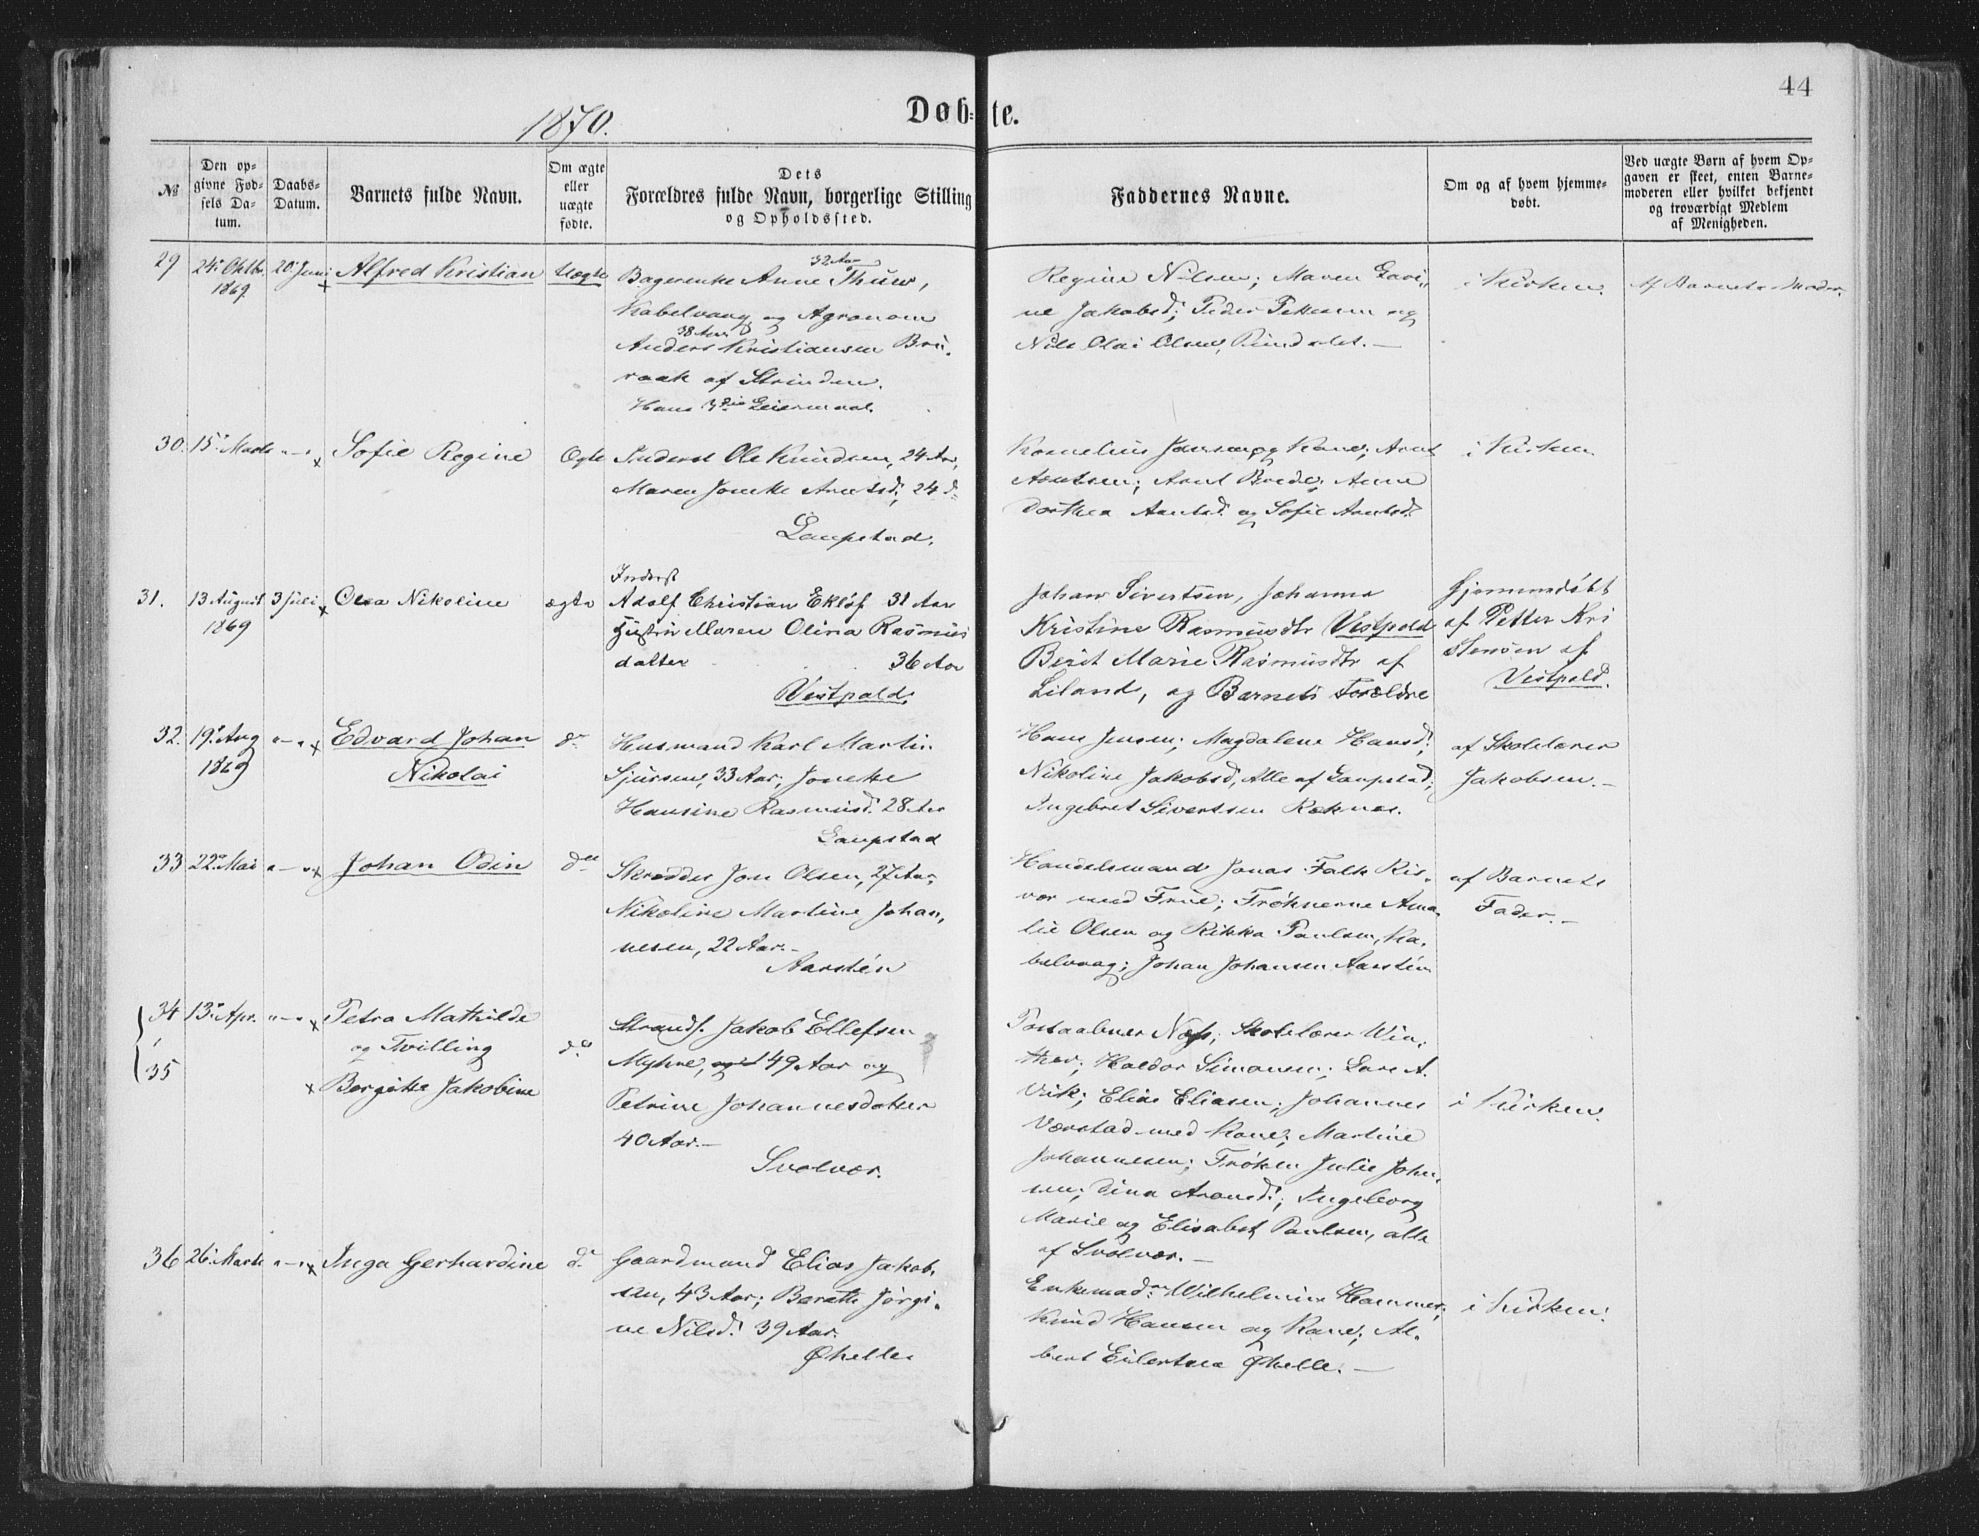 44
1870.
Døb-te.
№
Den opgivne Fødsels Datum.
Daabs-Datum.
Barnets fulde Navn.
Om ægte eller uægte fødte.
Dets Forældres fulde Navn, borgerlige Stilling og Opholdssted.
Faddernes Navne.
Om og af hvem hjemmedøbt.
Ved uægte Børn af hvem Opgaven er skeet, enten Barnemoderen eller hvilket bekjendt og troværdigt Medlem af Menigheden.
29
24. Oktbr. 1869
20. Juni
Alfred Kristian
Uægte
32 Aar
Anne Thuv,
Kabelvaag og Agronom
38 Aar
Anders Kristiansen Bru-
raak af Strinden.
Hans 3die Leiermaal.
Regine Nilsen; Maren
ne Jakobsd; Peder Pettersen og
Nils Olai Olsen,
i Kirken.
Af Barnets Moder.
30.
15. Marts
"—"
Sofie Regine
Ægte
Inderst Ole Knudsen, 24 Aar,
Maren Jonette Arntsd; 24 d
Laupstad.
Kornelius Jensen og Kone; Arnt
Arntsen; Arnt Brede; Anne
Dorthea Arntsd. og Sofie Arntsd.
i Kirken
31.
13 August 1869
3 Juli
Olea Nikoline
ægte
Inderst
Adolf Christian Eklöf 31 Aar
Hustru Maren Olina Rasmus
datter 36 Aar
Vestpold.
Johan Sivertsen, Johanna
Kristine Rasmusdtr Vestpold
Berit Marie Rasmusdtr af
Liland, og Barnets Forældre
Hjemmedöbt
af Petter Kri
stensen af
Vestpold.
32.
19. Aug 1869
"—"
Edvard Johan
Nikolai
do
Husmand Karl Martin
Sjursen, 33 Aar; Jonette
Hansine Rasmusd. 28 Aar
Laupstad
Hans Jensen; Magdalene Hansd;
Nikoline Jakobsd, Alle af Laupstad;
Ingebret Sivertsen Reknes.
af Skolelærer
Jakobsen.-
33
22. Mai
"—"
Johan Odin
do
Skrædder Jon Olsen, 27 Aar,
Nikoline Martine Johan-
nesen, 22 Aar.-
Aarsten
Handelsmand Jonas Falk Ris-
vær med Frue; Frøknerne Ama-
lie Olsen og Rikka Paulsen, Ka-
belvaag; Johan Johansen Aarsten
af Barnets
Fader.-
34
13. Apr.
"—"
Petra Mathilde
og Tvilling
35
Bergitte Jakobine
do
Strands. Jakob Ellefsen
Myhre, 49 Aar og
Petrine Johannesdatter
40 Aar.-
Svolvær.
Postaabner Næss; Skolelærer Win-
ther; Haldor Simonsen; Lars A.
Vik; Elias Eliasen; Johannes
Værstad med Kone; Martine
Johannesen; Frøken Julie John-
sen; Dina Aronsd.; Ingeborg
Marie og Elisabet Paulsen, alle
af Svolvær.-
i Kirken.
36
26. Marts
"—"
Inga Gerhardine
do
Gaardmand Elias Jakob-
sen, 43 Aar; Beratte Jørgi-
ne Nilsd. 39 Aar.
Øhelle
Enkemad. Wilhelmine Hammer,
Knud Hansen og Kone; Al-
bert Eilertsen Øhelle.-
i Kirken.